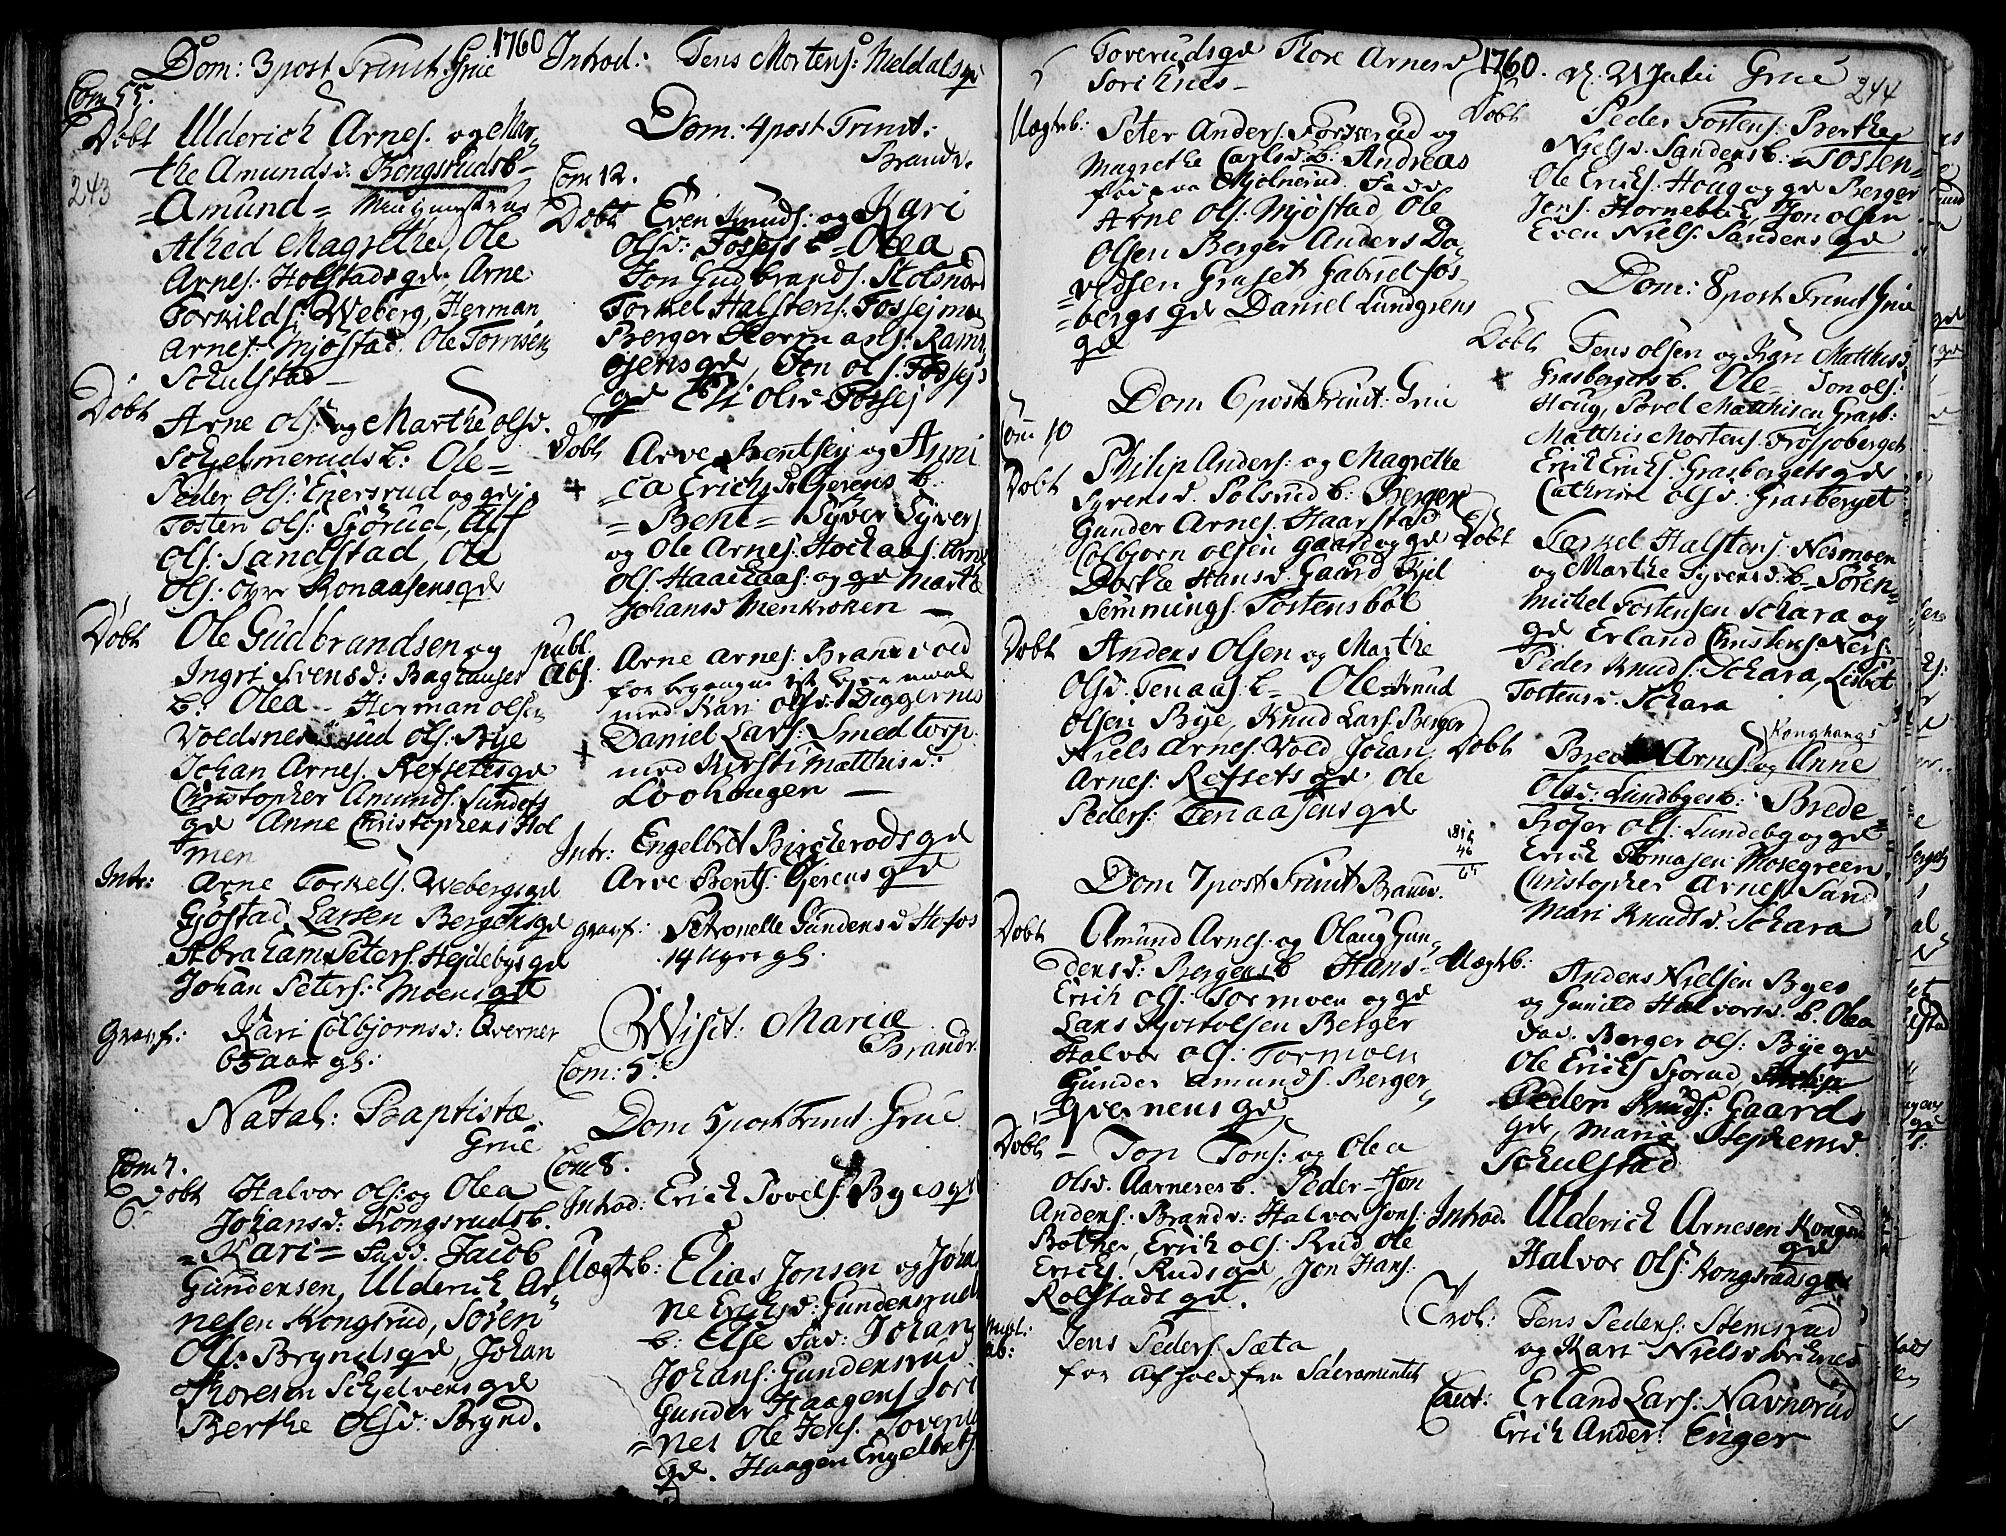 1760
Dom: 3 post Trinit: Grue
Com 55.
Döbt Ulderich Arnes. og Mar-
the Amundsd: Kongsrudsb-
243
=Amund=
Alhed Magrethe, Ole
Arnes: Holstadsgd, Arne
Torkilds: Weberg, Herman
Arnes: Mjöstad. Ole Tomisen
Schulstad
Döbt Arne Ols: og Marthe Olsd.
Schjelmeruds b: Ole=
Peder Ols: Enersrud og gd
Tosten Ols: Sjörud, Alf
Ols: Sandstad, Ole
Ols: Konaasensgd
Döbt Ole Gudbrandsen og
Ingri Svensd: Baghauset
b. Olea - Herman Olsen
Voldsnes Ols: Bye
Johan Arnes. Refsetsgd
Christopher Amunds: Sundets
gd Anne Christophers: Hol
men
Intr: Arne Torkels. Webergsgd
Gjöstad Larsen Bergersgd
Abraham Peters. Hejdebysgd
Johan Peters: Moensgd
Gravf: Kari Colbjornsd: Qverner
63 aar gl:
Natal: Baptistæ
Grue
Com 7.
Döbt Halvor Ols: og Olea
Johansd: Kongsrudsb.
=Kari= Fad. Jacob
Gundersen, Ulderich Ar
nesen Kongsrud, Sören
Ols: Bryndsgd, Johan
Thoresen Schjelversgd
Berthe Olsd: Brynd.
Introd: Jens Mortens: Meldalsgd
Dom: 4 post Trinit:
Brandv.
Com 12.
Döbt Even Knuds: og Kari
Olsd: Fossejs b= Olea
Jon Gudbrands. Stolsnord
Torkel Halstens: Fossejmoen
Berger Hermans: Ramm
öjensgd, Jon Ols. Fossejs
gd Eli Olsd Fossej
Döbt Arve Bentsen og Anni
ca Erichsd Gjerens b.
=Bent= Syver Syvers
og Ole Arnes. Hockaas: Arne
Ols Haackaas: og gd Marthe
Johansd Menkroken
publ.
Abs. Arne Arnes: Brandvold
for begangne
med Kari Olsd: Diggernes
Daniel Lars: Smedtorp
med Kirsti Matthisd:
Loohaugen
Intr: Engelbret Birkerodsgd
Arve Bents. Gjerensgd
Gravf: Petronelle Gundersd Hofos
14 Uger gl.
Wisit: Mariæ
Brandv.
Com: 5.
Dom 5 post Trinit. Grue
Com 8.
Introd: Erich Povels: Byesgd
Uægtb: Elias Jonsen og Joha
ne Erichsd: Gundersrud
b: Else Fad: Johan
Johans: Gundersrud
Gunder Haagens Sori
nes Ole Jens. Toverud
gd. Haagen Engelbrets
1760.
Toverudsgd Thore Arnesd
Soriknes
Uægtb: Peter Anders: Torkerud og
Magrethe Carlsd b: Andreas
Mjolnerud. Fadd
Arne Ols: Mjöstad, Ole
Olsen Berger Anders Da,
vidsen Gruset Gabriel Fos
=bergs gd Daniel Lundgrens
gd
Dom 6 post Trinit: Grue
Com 10
Döbt Philip Anders: og Magrethe
Syvensd. Polsrud b: Berger
Gunder Arnes. Haarstad
Colbjorn Olsen Gaard og gd
Dorthe Hansd. Gaard Kjel
Semmings. Tostensböl
Döbt Anders Olsen og Marthe
Olsd. Tenaas. b= Ole= Knud
Olsen Bye, Knud Lars. Berger
Niels Arnes. Vold Johan
Arnes: Refsetsgd, Ole
Peders: Tenaasensgd
Dom 7 post Trinit Brandv.
Döbt Amund Arnes. og Olaug Gun,
dersd: Bergersb Hans=
Erich Ols. Tormoen og gd
Lars Syverolsen Berger
Halvor Ols: Tormoen
Gunder Amunds. Berger,
=qvernensgd
Döbt Jon Jons: og Olea
Olsd. Aarneresb. Peder= Jon
Anders: Brandv: Halvor Jons:
Botner, Erich Ols: Rud Ole
Erichs. Rudsgd Jon Hans:
Rolstads gd.
publ:
ab: Jens Peders Sæta
for Afhold fra Sacramentet
d. 21 Julii Grue 244
Döbt Peder Tostens: Berthe
Nielsd. Sanders b: =Tosten=
Ole Erichs: Houg og gd Berger
Jons. Hornebek, Jon Olsen
Even Niels: Sandersgd
Dom: 8 post Trinit Grue
Döbt Jens Olsen og Kari Matthisd
Grasbergets b. Ole= Jon Ols:
Houg, Povel Matthisen Grasb.
Matthis Mortens: Frossoberget
Erich Erichs: Grasbergetsgd
Cathrine Olsd. Grasberget
Döbt Torkel Halstens: Nesmoen
og Marthe Syvensd. b= Sören=
Michel Tostensen Schara og
gd Erland Christens: Ners:
Peder Knuds: Schara, Lisbet
Tostensd. Schara
Döbt Brede Arnes Konghaugs og Anne
Olsd: Lundbyesb: Brede=
Proser Ols: Lundeby og gd
Erich Tomasen Mosegreen
Christopher Arnes. Sand
Mari Knudsd. Schara
Uægtb: Anders Nielsen Byes
og Gunild Halvorsd. b. Olea
Fad. Berger Ols: Bye gd
Ole Erichs Sjorud,
Peder Knuds: Gaards
gd, Marie Stephensd.
Schulstad
Introd. Ulderich Arnesen Kongsrud
gd
Halvor Ols: Kongsrudsgd
Trol: Jens Peders: Stemsrud
og Kari Nielsd Soriknes
Caut: Erland Lars. Navnerud
Erich Anders: Enger